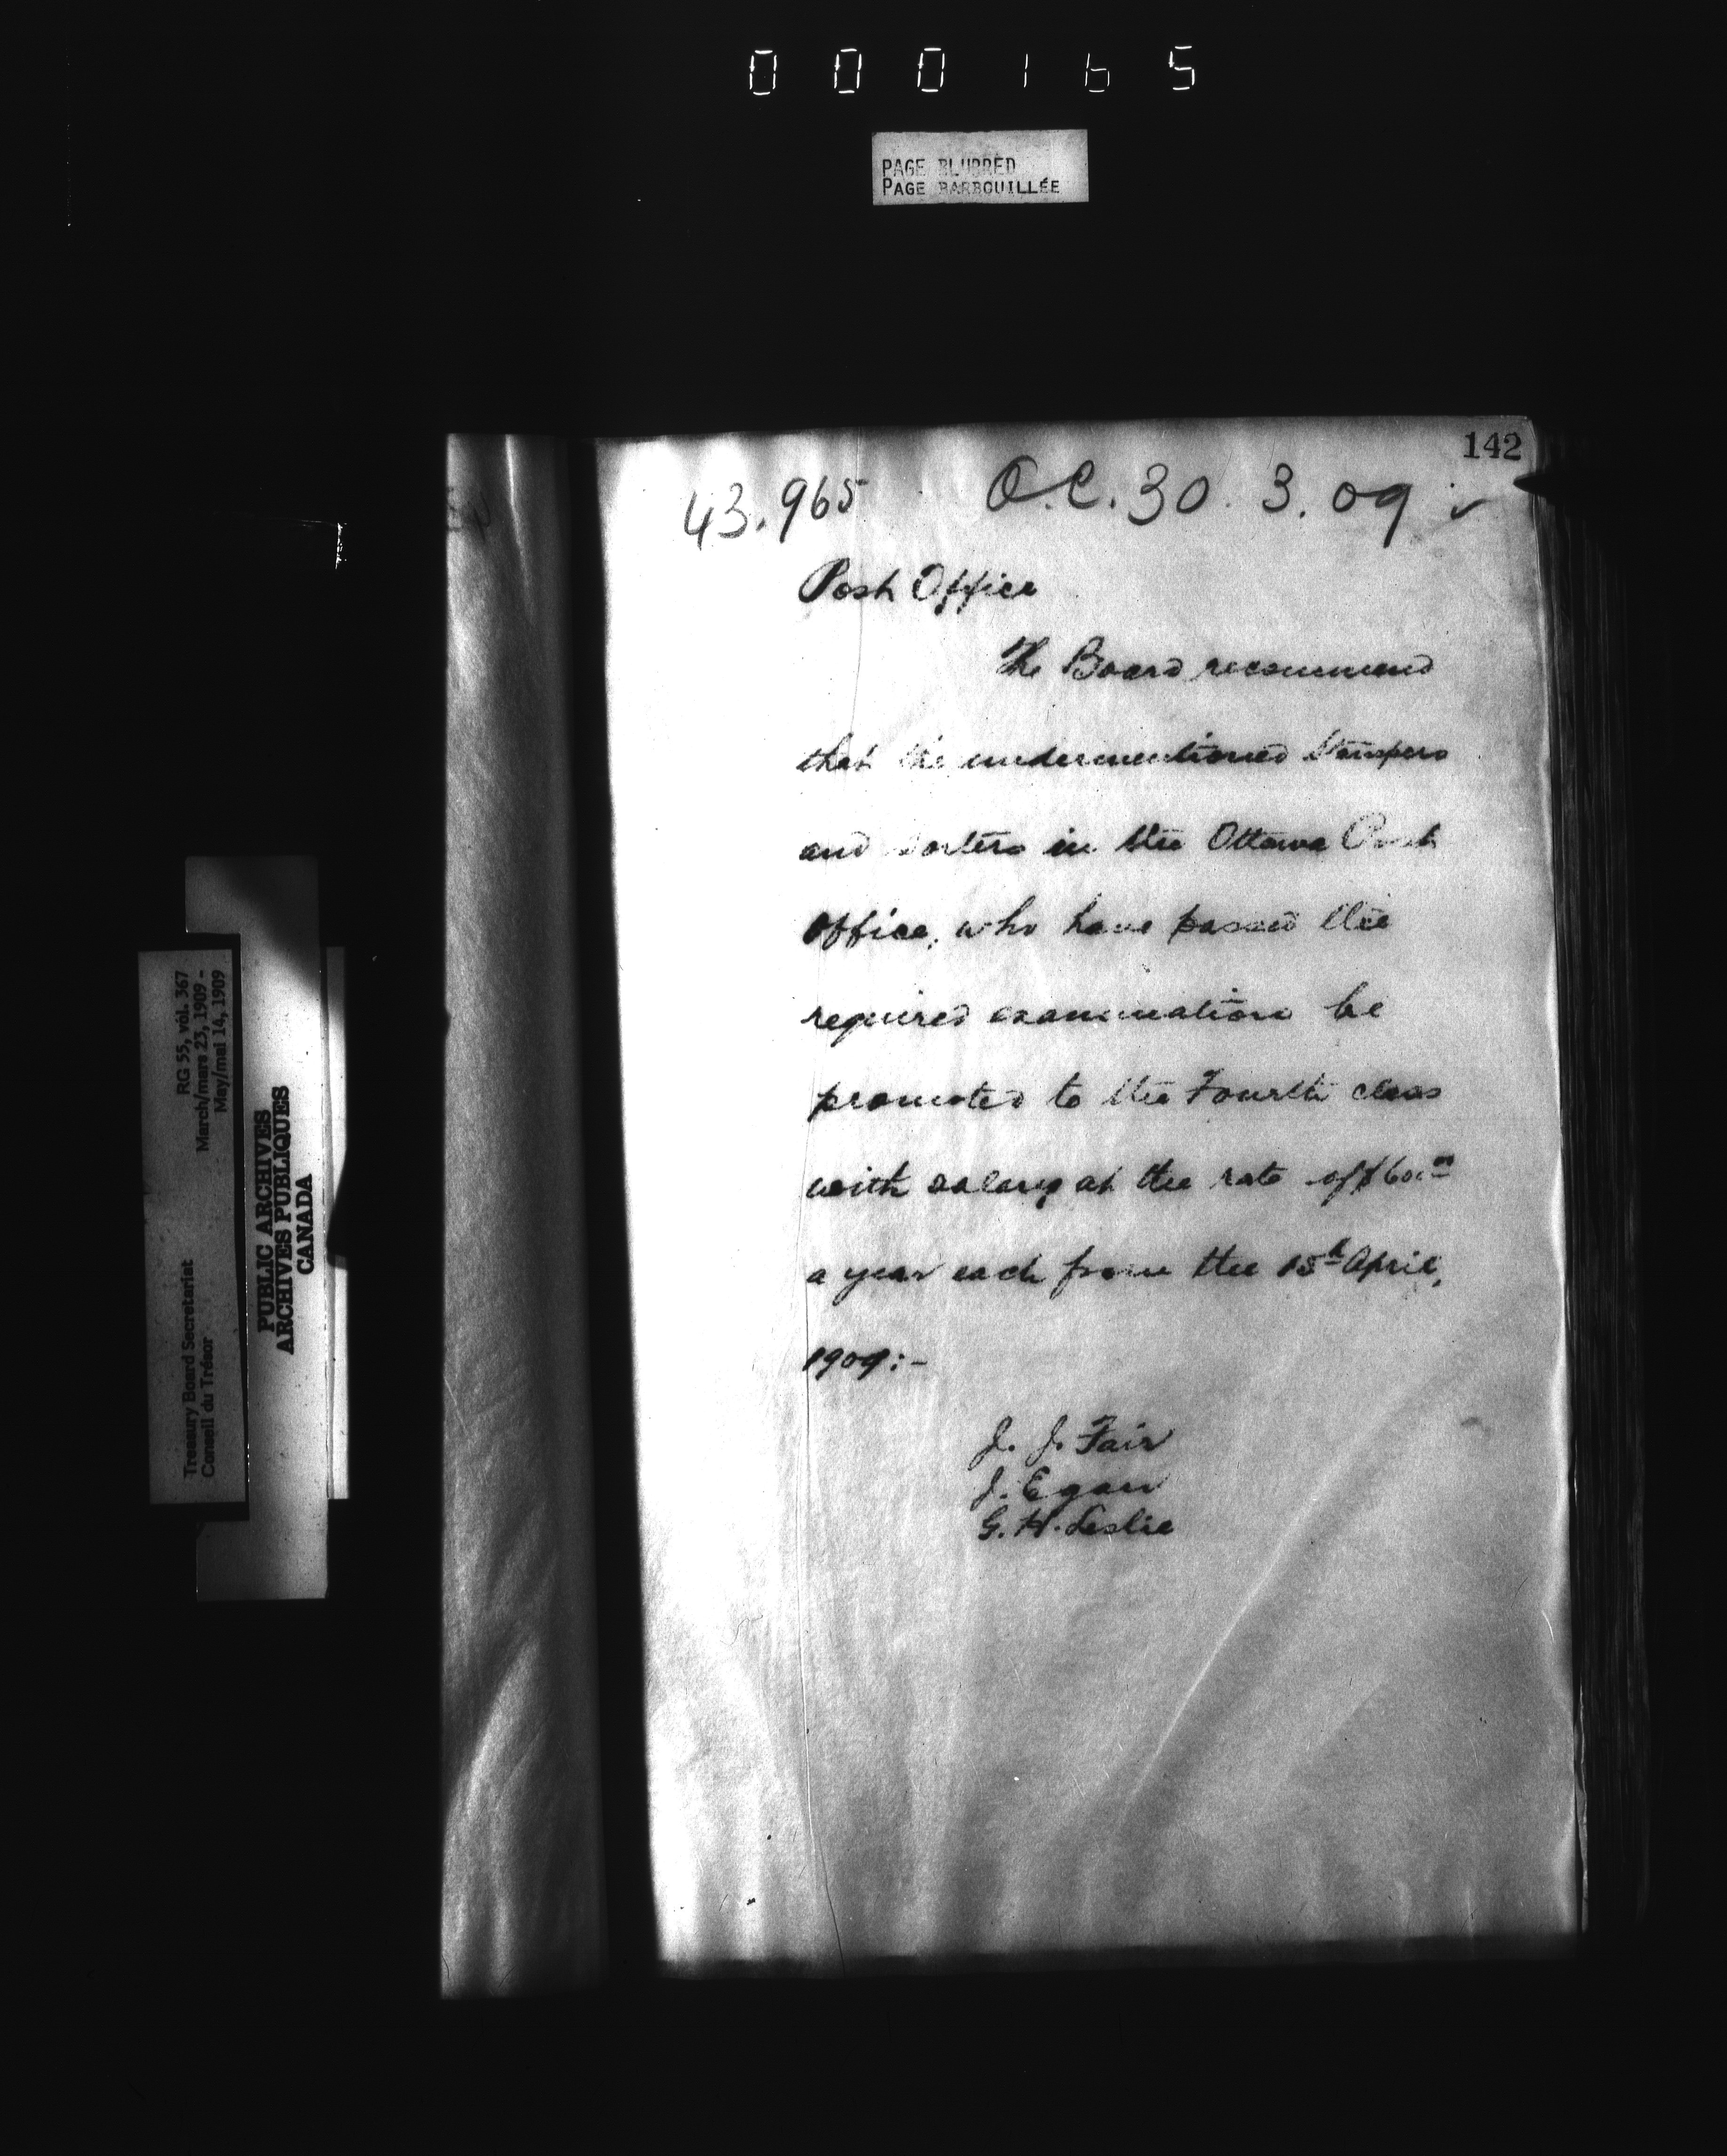 000165
PAGE BLURRED
PAGE BARBOUILLÉE
142
43.965 O.C. 30. 3. 09 ✓
Post Office
The Board recommend
that the undermentioned Stampers
and Sorters in the Ottawa Post
Office, who have passed the
required examination be
promoted to the Fourth class
with salary at the rate of $600.00
a year each from the 15th April,
1909:-
J. J. Fair
J. Egan
G. H. Leslie
RG 55, vol. 367
March/mars 23, 1909 -
May/mai 14, 1909
Treasury Board Secretariat
Conseil du Trésor
PUBLIC ARCHIVES
ARCHIVES PUBLIQUES
CANADA